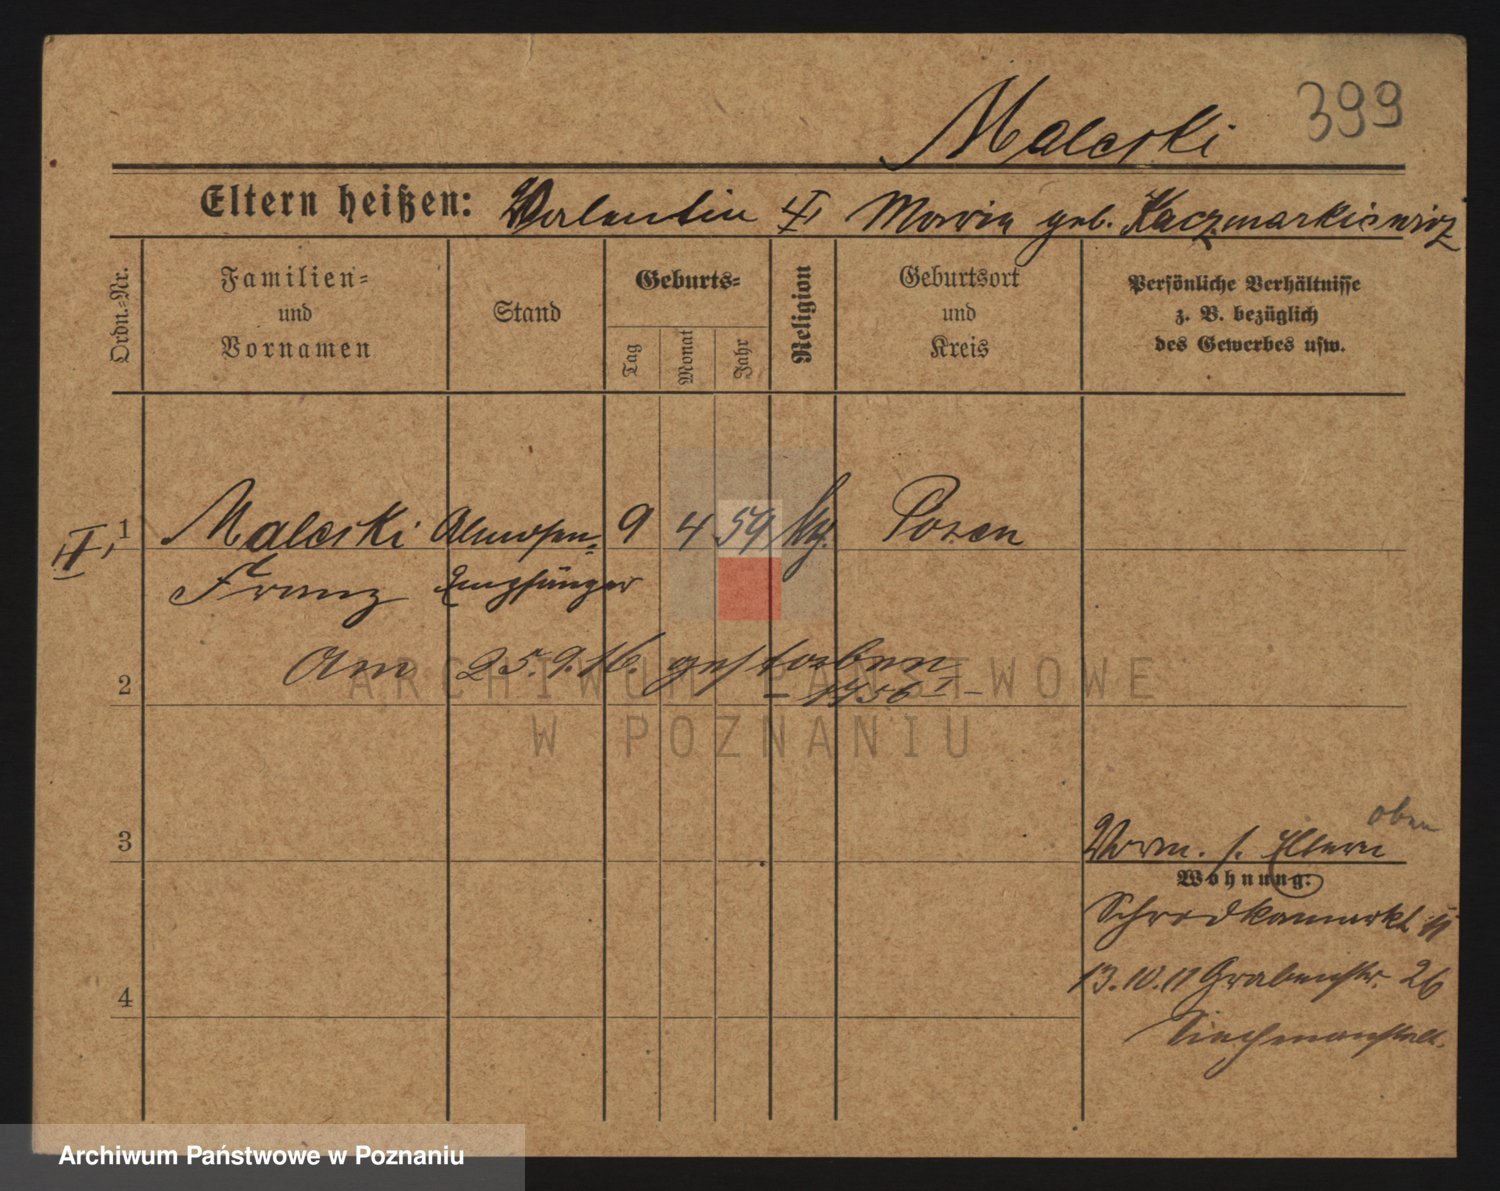 Maleski 399
Eltern heißen: Valentin u. Maria geb. Kaczmarkiewicz
Ordn.-Nr.
Familien-
und
Vornamen
Stand
Geburts-
Tag
Monat
Jahr
Religion
Geburtsort
und
Kreis
Persönliche Verhältnisse
z. B. bezüglich
des Gewerbes usw.
1 Maleski Almosen- 9 4 59 kg. Posen
Franz Empfänger
Am 25.9.16. gestorben
2
3
oben
Vorm. s. Eltern
Wohnung:
Schrodkamarkt 11
13.10.11 Grabenstr. 26
Siechenanstalt.
4
ARCHIWUM PAŃSTWOWE
W POZNANIU
Archiwum Państwowe w Poznaniu